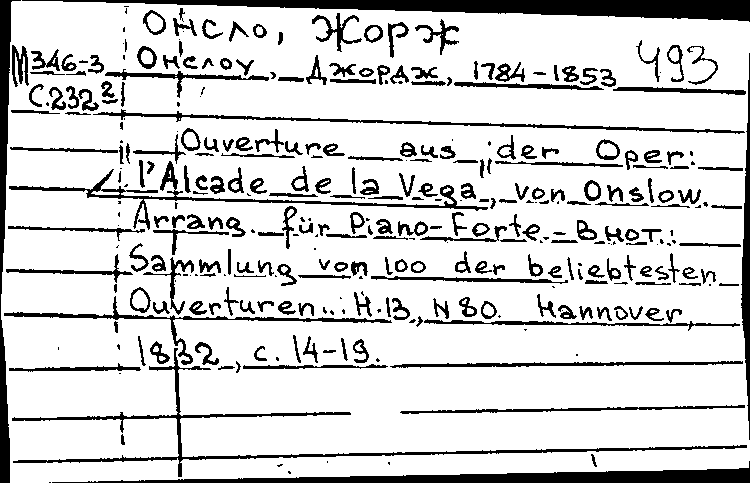 Онсло, Жорж
М346-3 Онслоу, Джордж, 1784-1853 493
С.232²
Ouverture aus „der Oper:
l'Alcade de la Vega", von Onslow.
Arrang. für Piano-Forte.- В нот.:
Sammlung von 100 der beliebtesten
Ouverturen...: H.13, N 80. Hannover,
1832, с. 14-19.